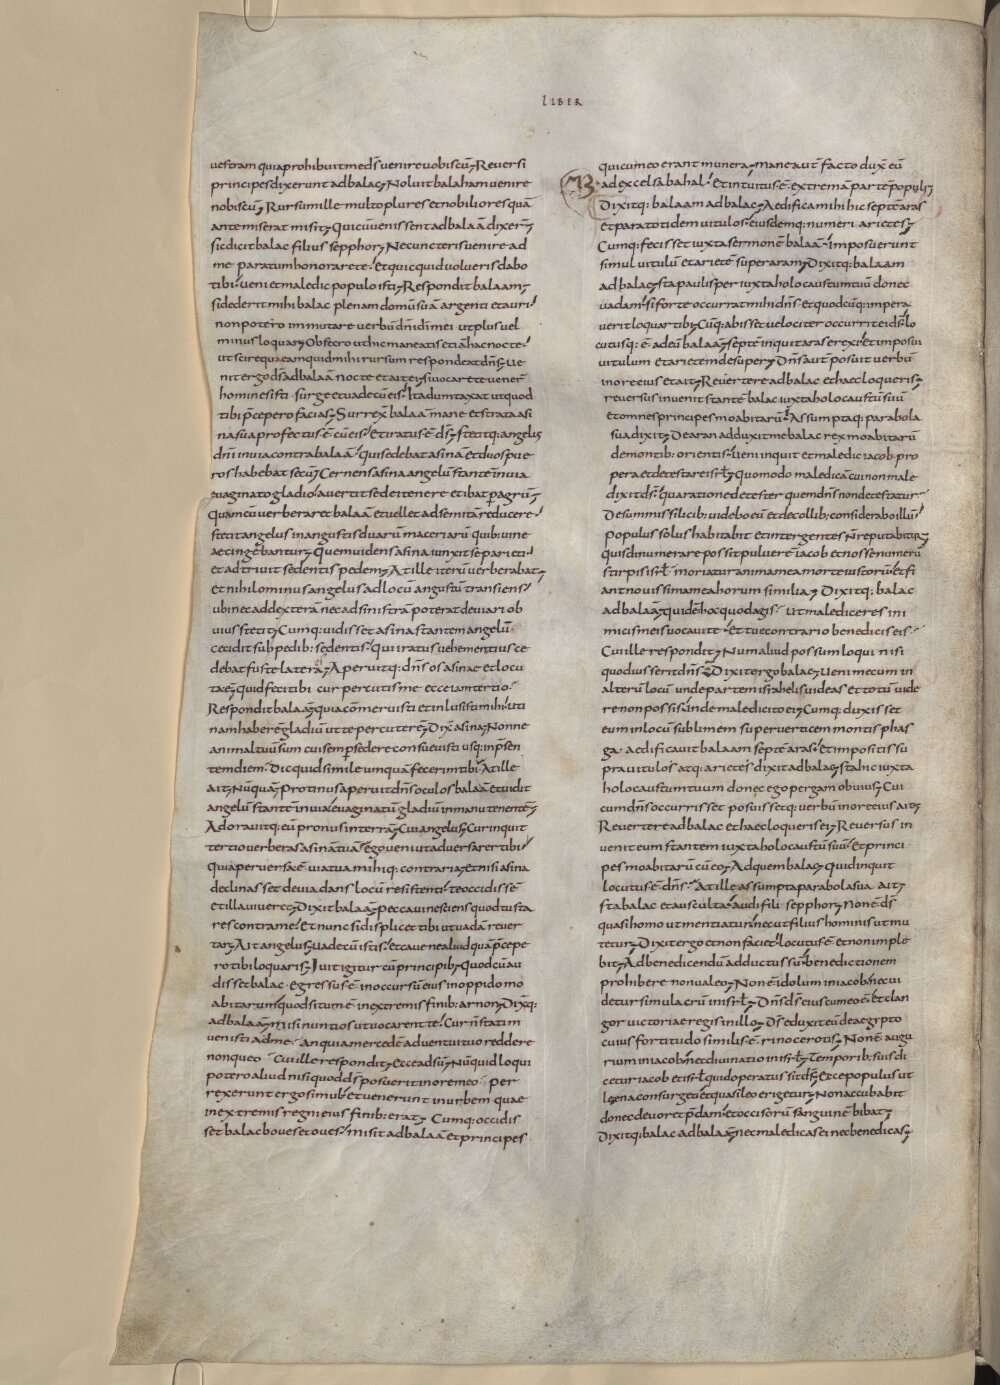 LIBER
vestram quia prohibuit me ds̄ venire vobiscū; Reversi
principes dixerunt ad balac; Noluit balaham venire
nobiscū; Rursum ille multo plures et nobiliores quā
ante miserat misit; Qui cū venissent ad balaā dixer̄;
sic dicit balac filius sepphor; Ne cuncteris venire ad
me paratum honorare te; Et quicquid volueris dabo
tibi; veni et maledic populo isti; Respondit balaam;
si dederit mihi balac plenam domū suā argenti et auri
non potero immutare verbū dn̄i di mei ut plus vel
minus loquar; Obsecro ut hic maneatis etiā hac nocte
ut scire queam quid mihi rursum respondeat dn̄s; Ve
nit ergo ds̄ ad balaā nocte et ait ei; Si vocare te vener̄
homines isti surge et vade cū eis; Ita dumtaxat ut quod
tibi p̄cepero facias; Surrex̄ balaā mane et strata asi
na sua profectus ē cū eis; Et iratus ē ds̄; stetitq; angelus
dn̄i in via contra balaā; Qui sedebat asina et duos pue
ros habebat secū; Cernens asina angelū stantē in via
evaginato gladio avertit se de itenere et ibat p agrū;
Quam cū verberaret balaā et vellet ad semitā reducere
stetit angelus in angustiis duarū maceriarū quib; vine
ae cingebantur; Quem videns asina iunxit se parieti
et adtrivit sedentis pedem; At ille iterū verberabat;
et nihilominus angelus ad locū angustū transiens
ubi nec ad dexterā nec ad sinistrā poterat deviari ob
vius stetit; Cumq; vidisset asina stantem angelū
cecidit sub pedib; sedentis; Qui iratus vehementius ce
debat fuste latera; Aperuitq; dn̄s os asinae et locu
ta ē; quid feci tibi cur percutis me ecce iam tertio
Respondit balaā; quia cōmeruisti et inlusisti mihi uti
nam haberē gladiū ut te percuterē; Dix̄ asina; Nonne
animal tuū sum cui semp sedere consuevisti usq; in p̄sen
tem diem; Dic quid simile umquā fecerim tibi; At ille
ait; Nūquā; Protinus aperuit dn̄s oculos balaā et vidit
angelū stantē in via evaginatū gladiū in manu tenentē;
Adoravitq; eū pronus in terrā; Cui angelus; Cur inquit
tertio verberas asinā tuā; Ego veni ut adversarer tibi
Quia perversa ē via tua mihiq; contraria; Et nisi asina
declinasset de via dans locū resistenti te occidissē
et illa viveret; Dixit balaā; peccavi nesciens quod tu sta
res contra me; Et nunc si displicet tibi ut vadā rever
tar; Ait angelus; Vade cū istis; Et cave ne aliud quā p̄cepe
ro tibi loquaris; Ivit igitur cū principib; Quod cū au
disset balac egressus ē in occursū eius in oppido mo
abitarum quod situm ē in extremis finib; arnon; Dix̄q;
ad balaā; misi nuntios ut vocarent te; Cur n̄ statim
venisti ad me an quia mercedē adventui tuo reddere
non queo Cui ille respondit; Ecce adsū; Nūquid loqui
potero aliud nisi quod ds̄ posuerit in ore meo per
rexerunt ergo simul et venerunt in urbem quae
in extremis regni eius finib; erat; Cumq; occidis
set balac boves et oves misit ad balaā et principes
qui cum eo erant munera; mane autē facto dux̄ eū
ad excelsa bahal; Et intuitus ē extremā partē populi;
Dixitq; balaam ad balac; Aedifica mihi hic septē aras
et para totidem vitulos eiusdemq; numeri arietes;
Cumq; fecisset iuxta sermonē balaā imposuerunt
simul vitulū et arietē super aram; Dixitq; balaam
ad balac; sta paulisper iuxta holocaustum tuū donec
vadam si forte occurrat mihi dn̄s et quodcūq; impera
verit loquar tibi; Cūq; abisset velociter occurrit ei ds̄ lo
cutusq; ē ad eū balaā; septē inquit aras erexi et imposui
vitulum et arietem desuper; Dn̄s autē posuit verbū
in ore eius et ait; Revertere ad balac et haec loqueris;
reversus invenit stantē balac iuxta holocaustū suū
et omnes principes moabitarū; Assumptaq; parabola
sua dixit; De aran adduxit me balac rex moabitarū
de montib; orientis; Veni inquit et maledic iacob pro
pera et detestare isrł; Quomodo maledicā cui non male
dixit ds̄; qua ratione detester quem dn̄s non detestatur
De summis silicib; videbo eū et de collib; considerabo illū
Populus solus habitabit et inter gentes n̄ reputabitur;
quis dinumerare possit pulverē iacob et nosse numerū
stirpis isrł moriatur anima mea morte iustorū et fi
ant novissima mea horum similia; Dixitq; balac
ad balaā; quid ē hoc quod agis Ut malediceres ini
micis meis vocavi te Et tu e contrario benedicis eis
Cui ille respondit; Num aliud possum loqui nisi
quod iusserit dn̄s; Dixit ergo balac; Veni mecum in
alterū locū unde partem israhelis videas et totū vide
re non possis inde maledicito ei; Cumq; duxisset
eum in locū sublimem super verticem montis phas
ga aedificavit balaam septē aras; Et impositis su
pra vitulos atq; arietes dixit ad balac; sta hic iuxta
holocaustum tuum donec ego pergam obvius; Cui
cum dn̄s occurrisset posuissetq; verbū in ore eius ait;
Revertere ad balac et haec loqueris ei; Reversus in
venit eum stantem iuxta holocaustū suū et princi
pes moabitarū cū eo; Ad quem balac; Quid inquit
locutus ē dn̄s At ille assumpta parabola sua ait;
sta balac et ausculta audi fili sepphor; Non ē ds̄
quasi homo ut mentiatur nec ut filius hominis ut mu
tetur; Dixit ergo et non faciet locutus ē et non imple
bit; Ad benedicendū adductus sū benedictionem
prohibere non valeo; Non ē idolum in iacob nec vi
detur simulacrū in isrł; Dn̄s ds̄ eius cum eo ē; Et clan
gor victoriae regis in illo; Ds̄ eduxit eū de aegypto
cuius fortitudo similis ē rinocerotis; Non ē augu
rium in iacob nec divinatio in isrł; Temporib; suis di
cetur iacob et isrł quid operatus sit ds̄; Ecce populus ut
leęna consurget et quasi leo erigetur; Non accubabit
donec devoret p̄dam et occisorū sanguinē bibat;
Dixitq; balac ad balaā; nec maledicas ei nec benedicas;